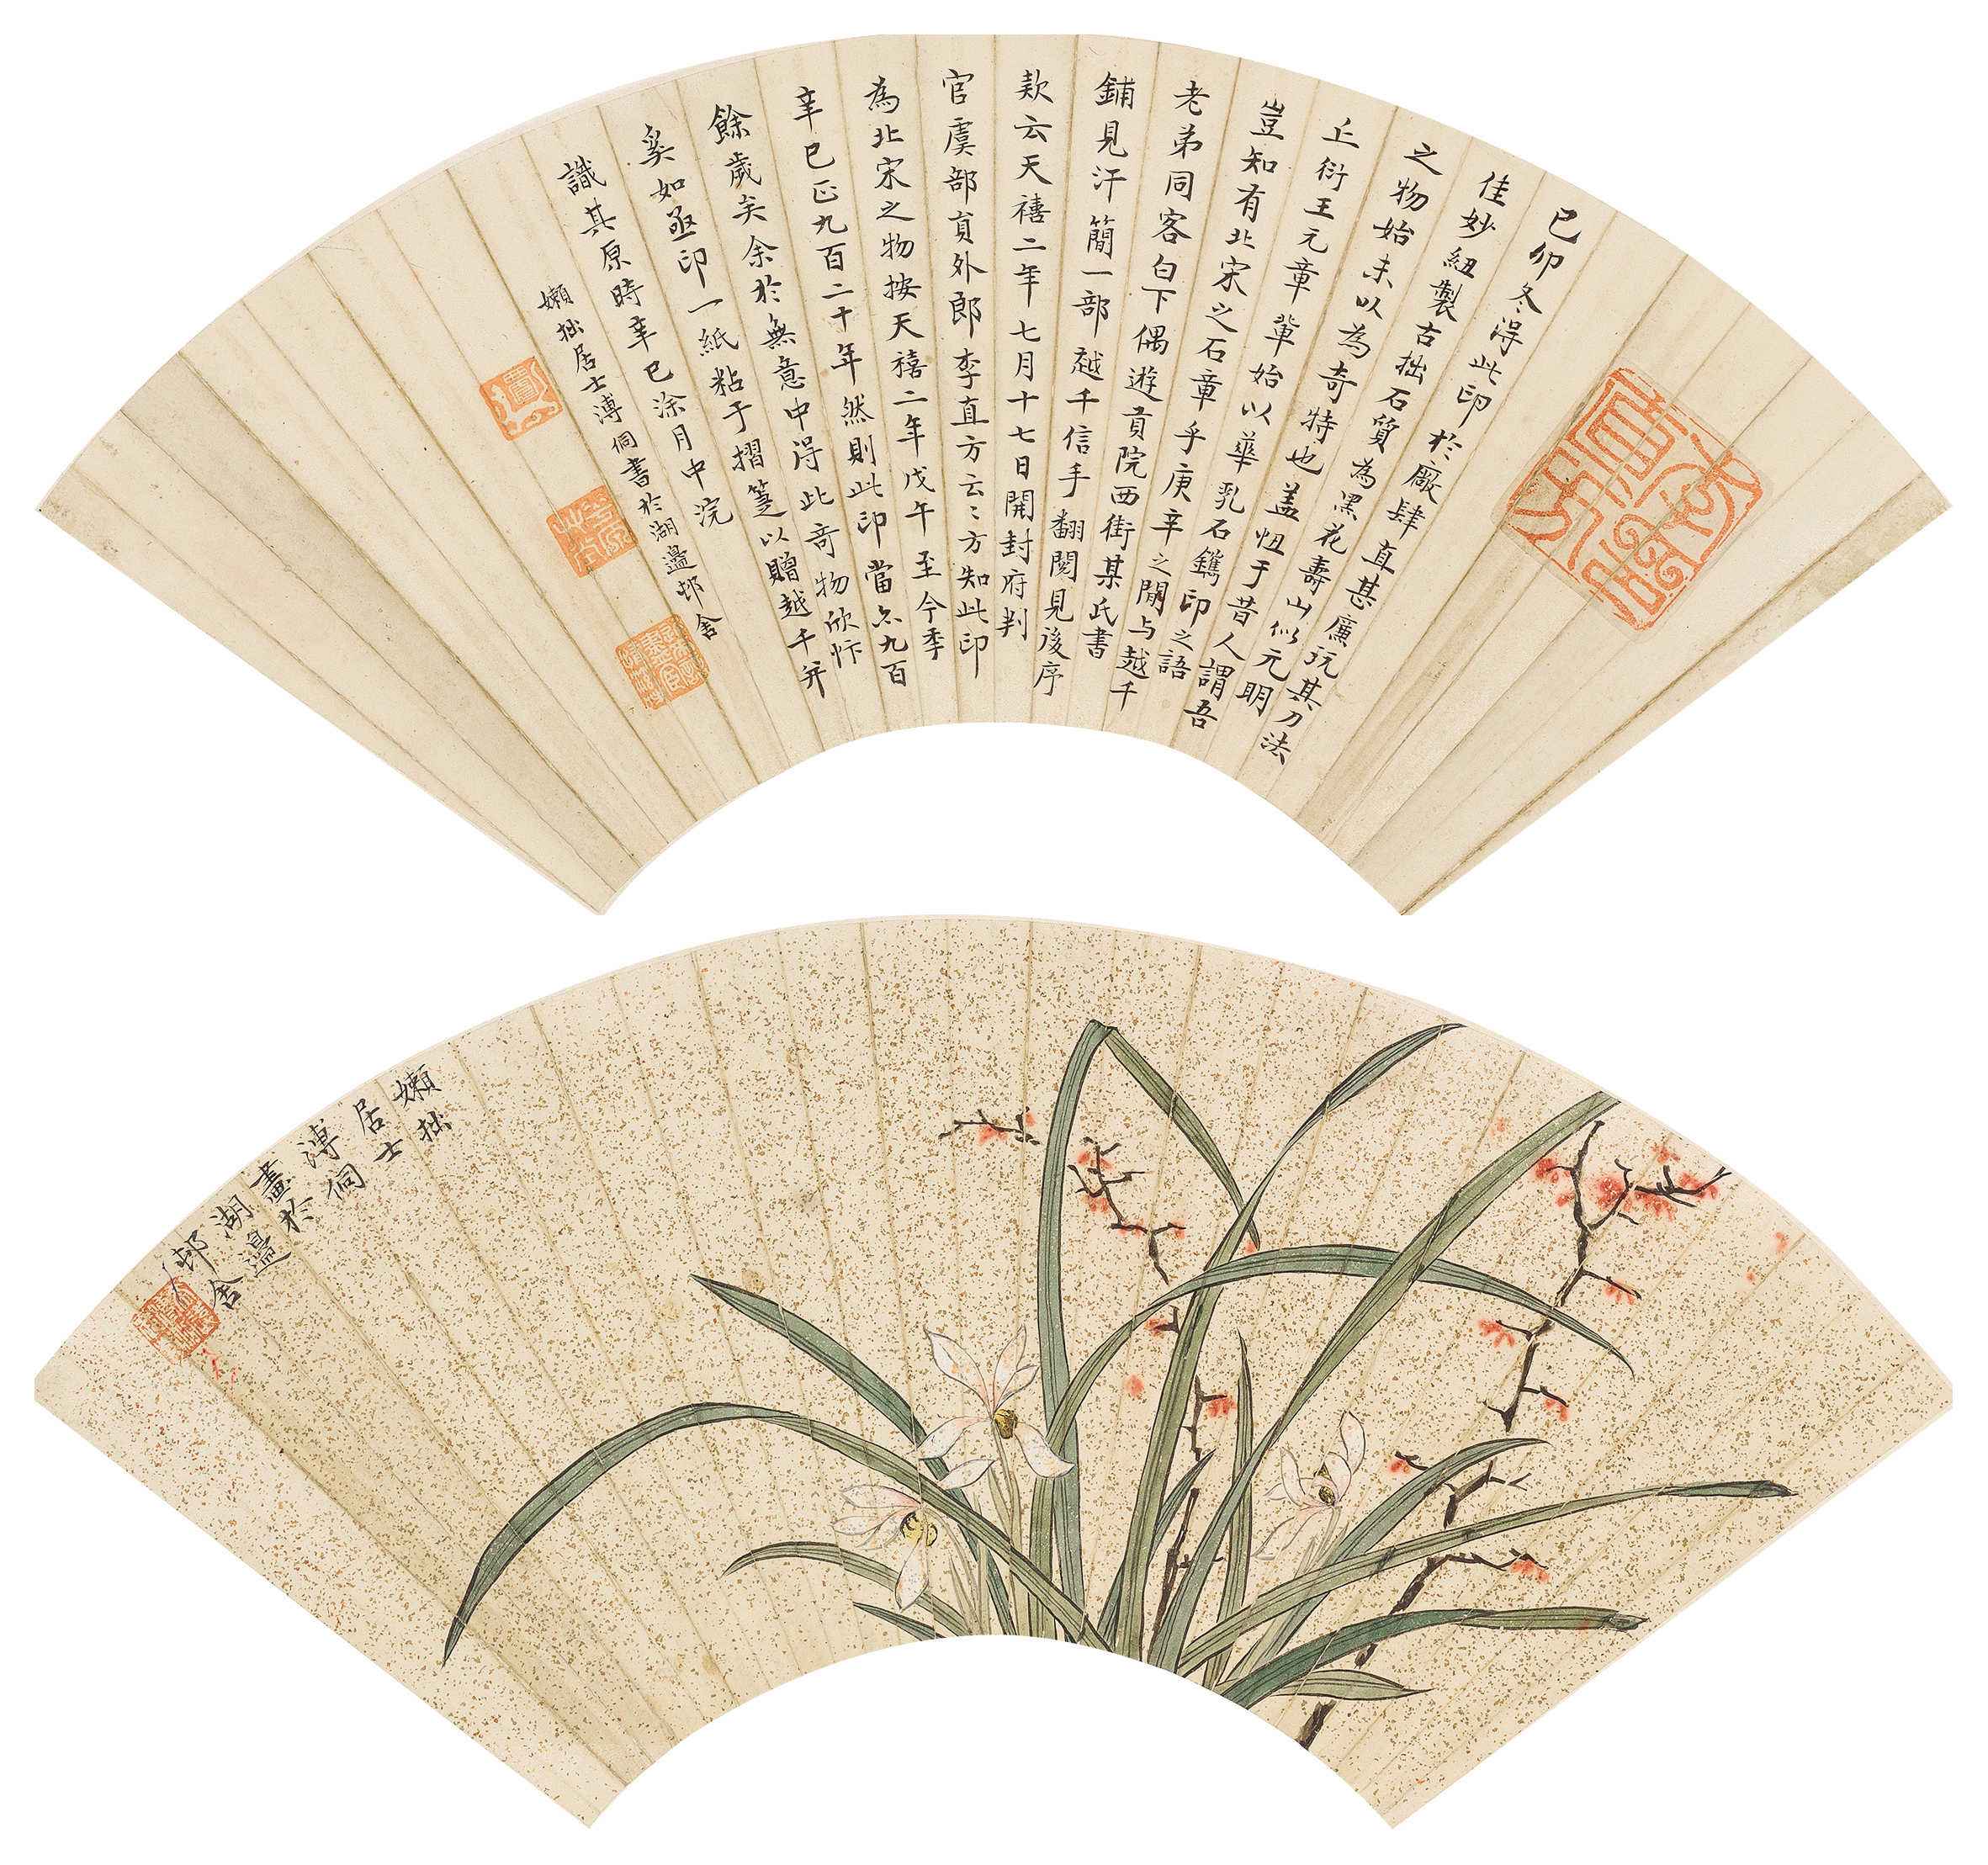 己卯冬得此印於廠肆直甚廉玩其刀法
佳妙紐製古拙石質為黑花壽山似元明
之物始未以為奇特也盖忸于昔人謂吾
丘衍王元章輩始以華乳石鐫印之語
豈知有北宋之石章乎庚辛之間与越千
老弟同客白下偶遊貢院西街某氏書
鋪見汗簡一部越千信手翻閱見後序
款云天禧二年七月十七日開封府判
官虞部員外郎李直方云〻方知此印
為北宋之物按天禧二年戊午至今季
辛巳正九百二十年然則此印當亦九百
餘歲矣余於無意中得此奇物欣忭
奚如亟印一紙粘于摺箑以贈越千并
識其原時辛巳涂月中浣
嬾拙居士溥侗書於湖邉邨舍
李直方
嬾拙
居士
溥侗
畫於
湖邉
邨舍